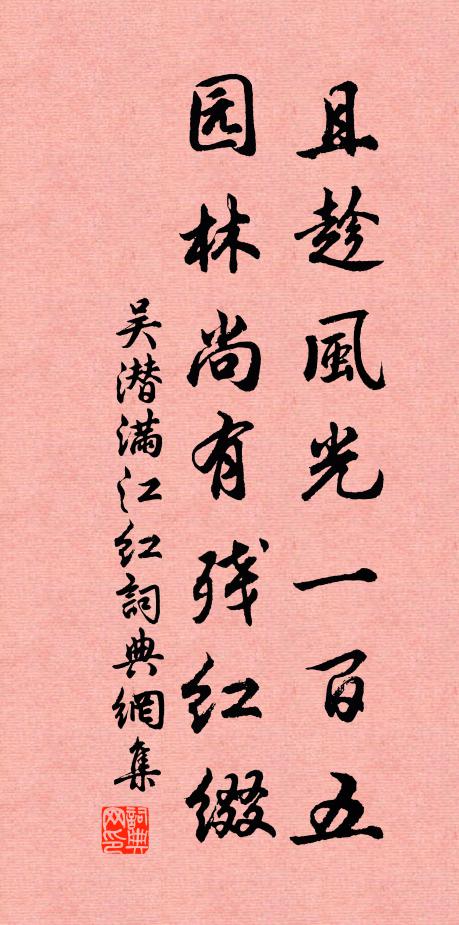 且趁風光一百五
园林尚有残红缀
吴潜满江红詞典網集
詞典网印